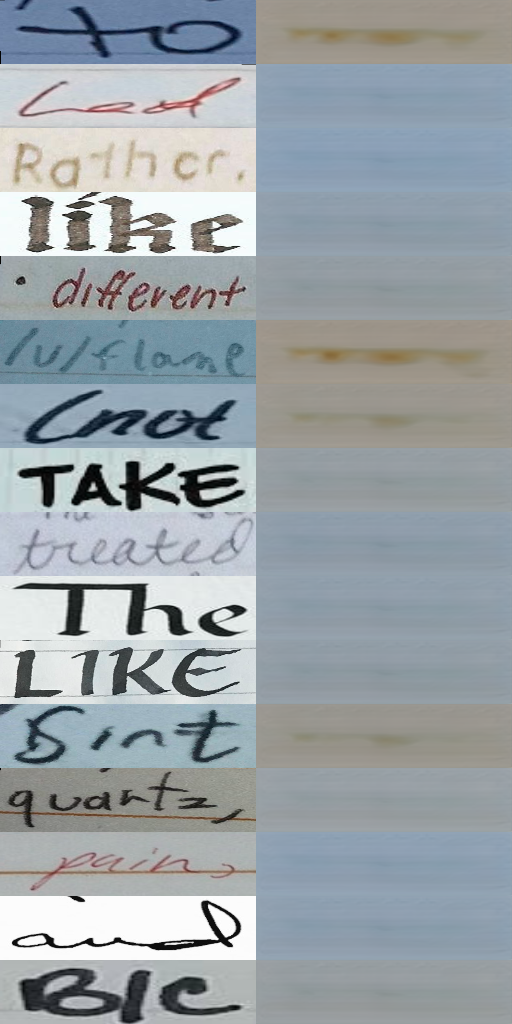 to
had
Rather.
like
• different
/u/flame
(not
TAKE
treated
The
LIKE
Sint
quartz,
pain,
and
B/C